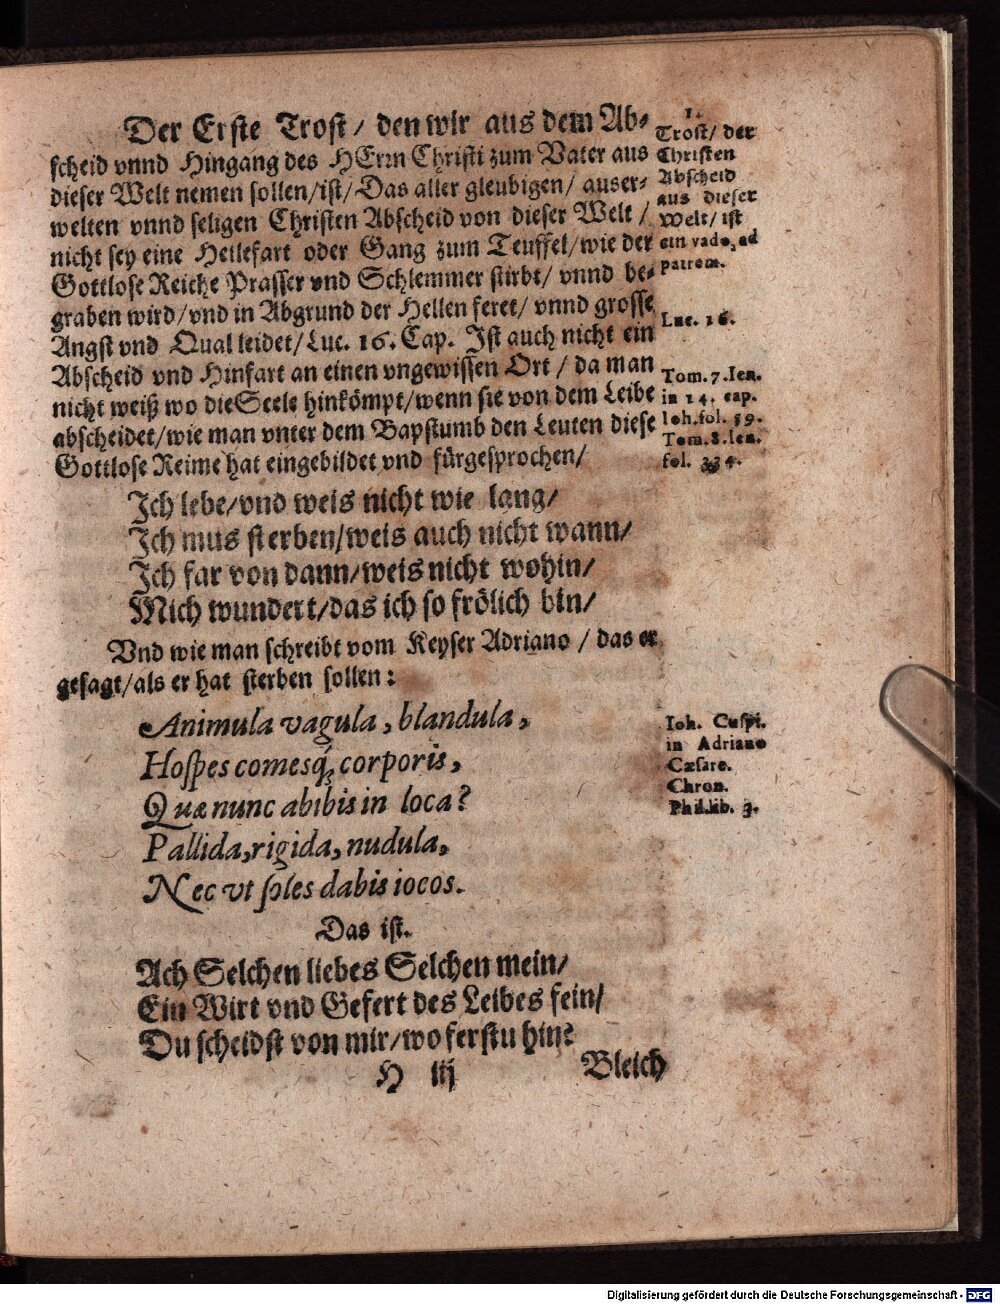 Der Erste Trost / den wir aus dem Ab-
scheid vnnd Hingang des HErrn Christi zum Vater aus
dieser Welt nemen sollen/ist/Das aller gleubigen/ auser-
welten vnnd seligen Christen Abscheid von dieser Welt /
nicht sey eine Hellefart oder Gang zum Teuffel/wie der
Gottlose Reiche Prasser vnd Schlemmer stirbt/ vnnd be-
graben wird/vnd in Abgrund der Hellen feret/ vnnd grosse
Angst vnd Qual leidet/Luc. 16. Cap. Ist auch nicht ein
Abscheid vnd Hinfart an einen vngewissen Ort / da man
nicht weiß wo die Seele hinkömpt/wenn sie von dem Leibe
abscheidet/wie man vnter dem Bapstumb den Leuten diese
Gottlose Reime hat eingebildet vnd fürgesprochen/
Ich lebe/vnd weis nicht wie lang/
Ich mus sterben/weis auch nicht wann/
Ich far von dann/weis nicht wohin/
Mich wundert/das ich so frölich bin/
Vnd wie man schreibt vom Keyser Adriano / das er
gesagt/als er hat sterben sollen:
Animula vagula, blandula,
Hospes comesq́; corporis,
Quæ nunc abibis in loca?
Pallida, rigida, nudula,
Nec vt soles dabis iocos.
Das ist.
Ach Selchen liebes Selchen mein/
Ein Wirt vnd Gefert des Leibes fein/
Du scheidst von mir/wo ferstu hin?
H iij Bleich
1.
Trost/ der
Christen
Abscheid
aus dieser
Welt/ ist
ein vado, ad
patrem.
Luc. 16.
Tom. 7. Ien.
in 14. cap.
Ioh. fol. 59.
Tom. 8. Ien.
fol. 334.
Ioh. Cuspi.
in Adriano
Cæsare.
Chron.
Phil. lib. 3.
Digitalisierung gefördert durch die Deutsche Forschungsgemeinschaft - DFG